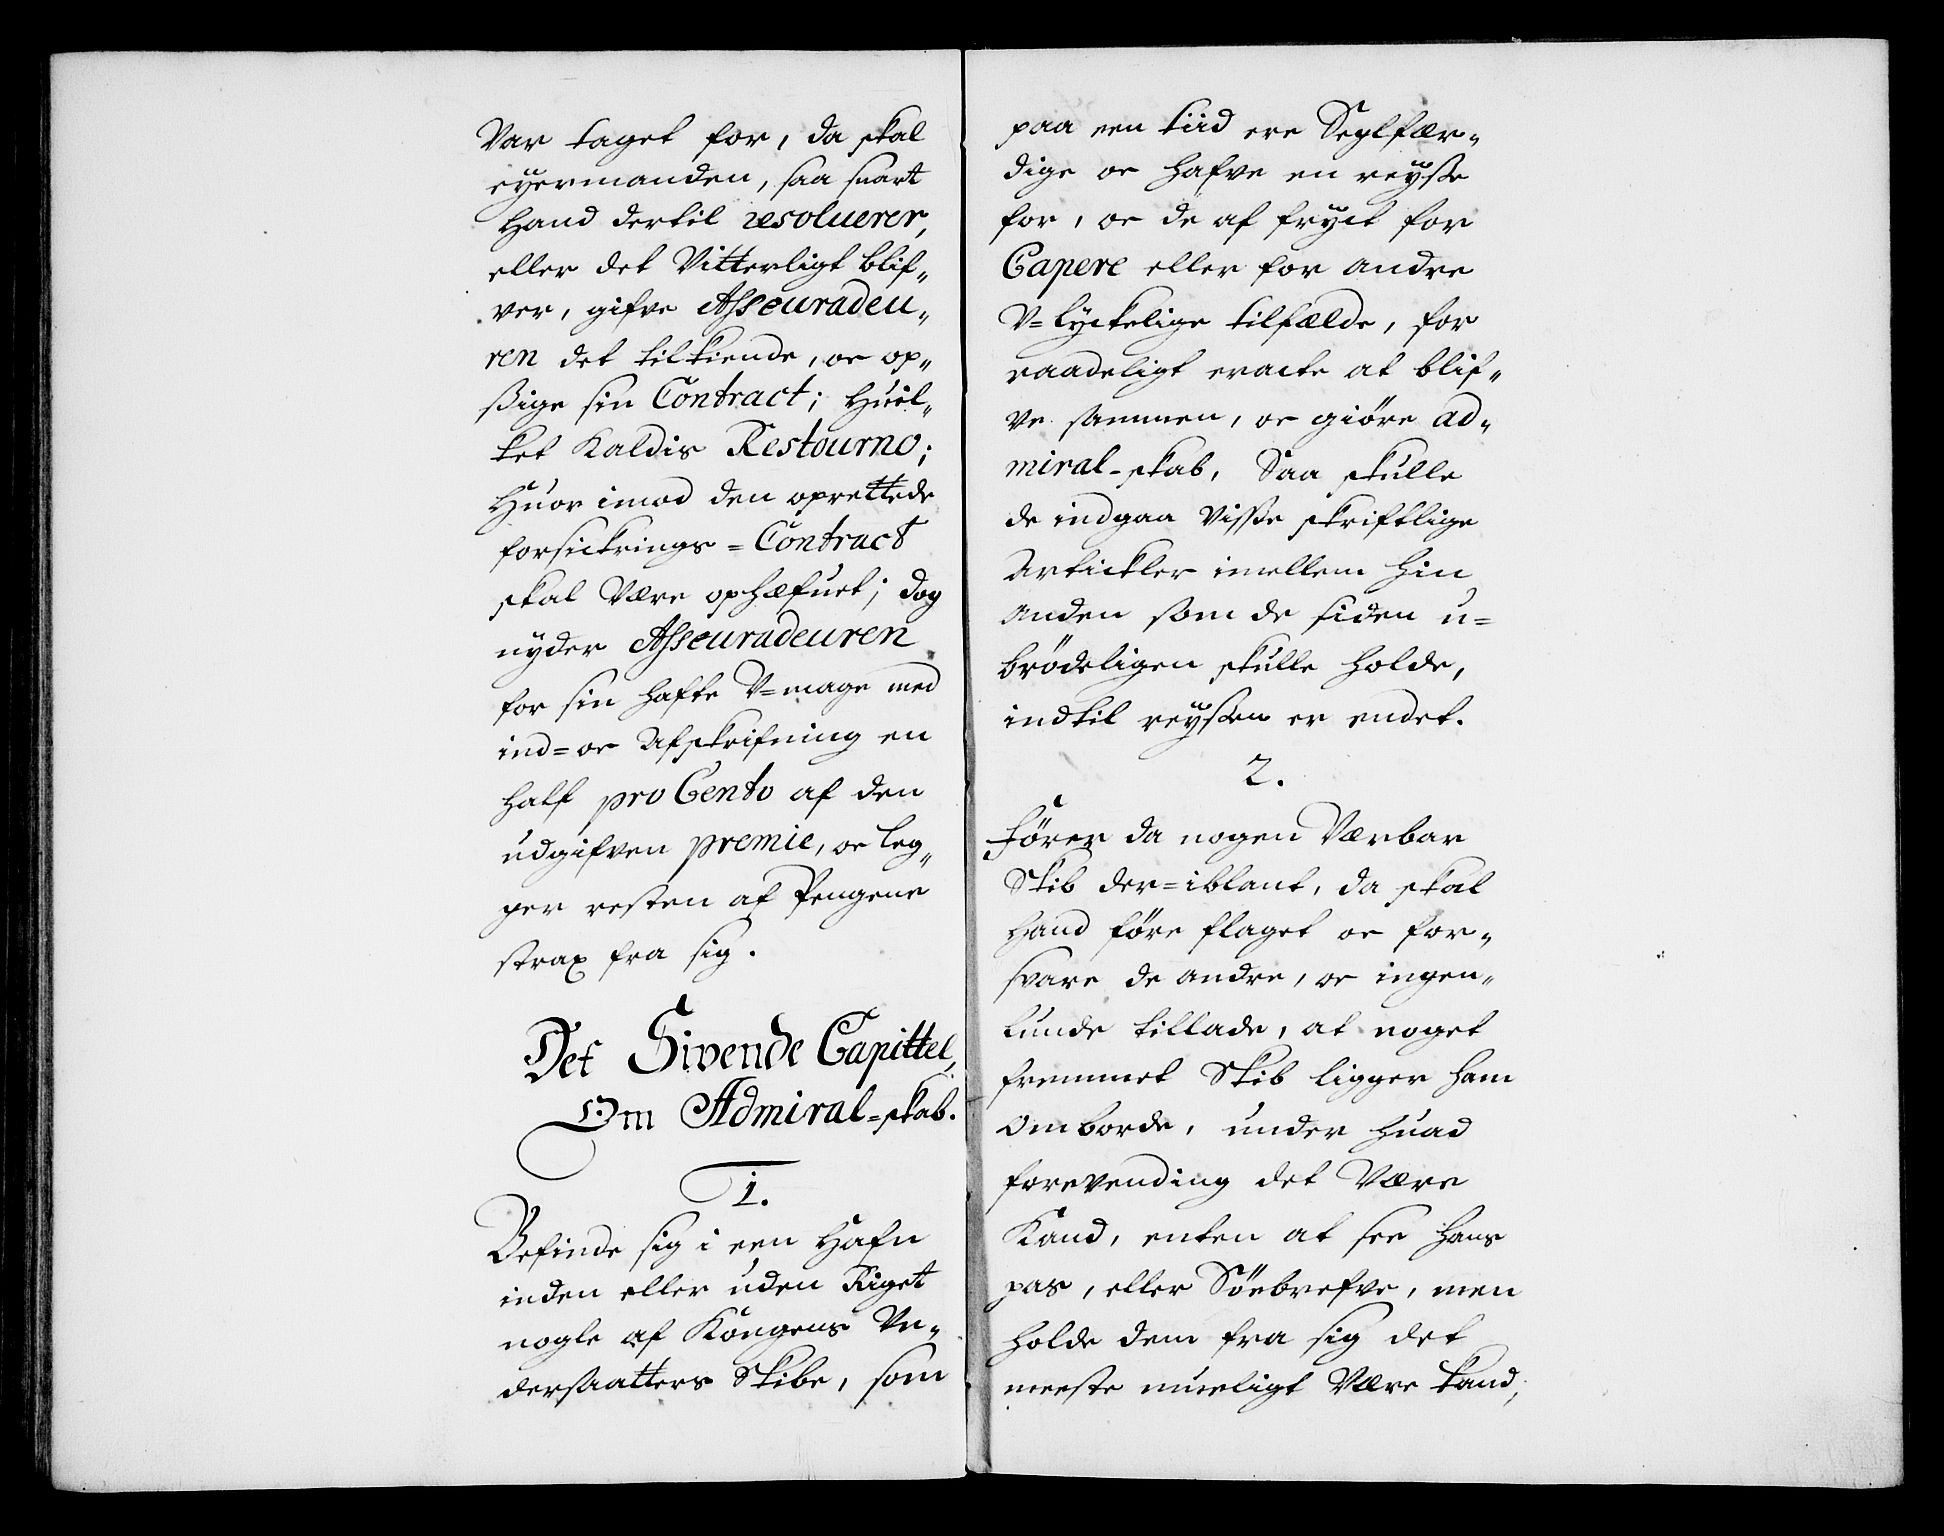 Var taget for, da skal
eyermanden, saa snart
Hand dertil resoluerer,
eller det Vitterligt blif„
ver, gifve Asseuradeu„
ren det tilkiende, oc op„
sige sin Contract; Huil„
ket Kaldis Restourno;
Huor imod den oprettede
forsickrings = Contract
skal Være ophæfuet; dog
nyder Asseuradeuren
for sin hafte V=mage med
ind= oc Afskrifning en
half pro Cento af den
udgifven premie, oc leg„
ger resten af Pengene
strax fra sig.
Det Sivende Capittel,
Om Admiral=skab.
1.
Befinde sig i een Hafn
inden eller uden Riget
nogle af Kongens Un„
dersaatters Skibe, som
paa een tiid ere Seglfær„
dige oc hafve en reysse
for, oc de af fryct for
Capere eller for andre
V=lyckelige tilfælde, for
raadeligt eracte at blif„
ve sammen, oc giöre ad„
miral=skab, Saa skulle
de indgaa Visse skriftlige
Artickler imellem hin
anden som de siden u=
brödeligen skulle holde,
indtil reyssen er endet.
2.
Förer da nogen Værbar
Skib der=iblant, da skal
hand före flaget oc for„
svare de andre, oc ingen„
lunde tillade, at noget
fremmet Skib ligger ham
Omborde, under huad
forevending det Være
Kand, enten at see hans
pas, eller Söebrefve, men
holde dem fra sig det
meeste mueligt Være kand,